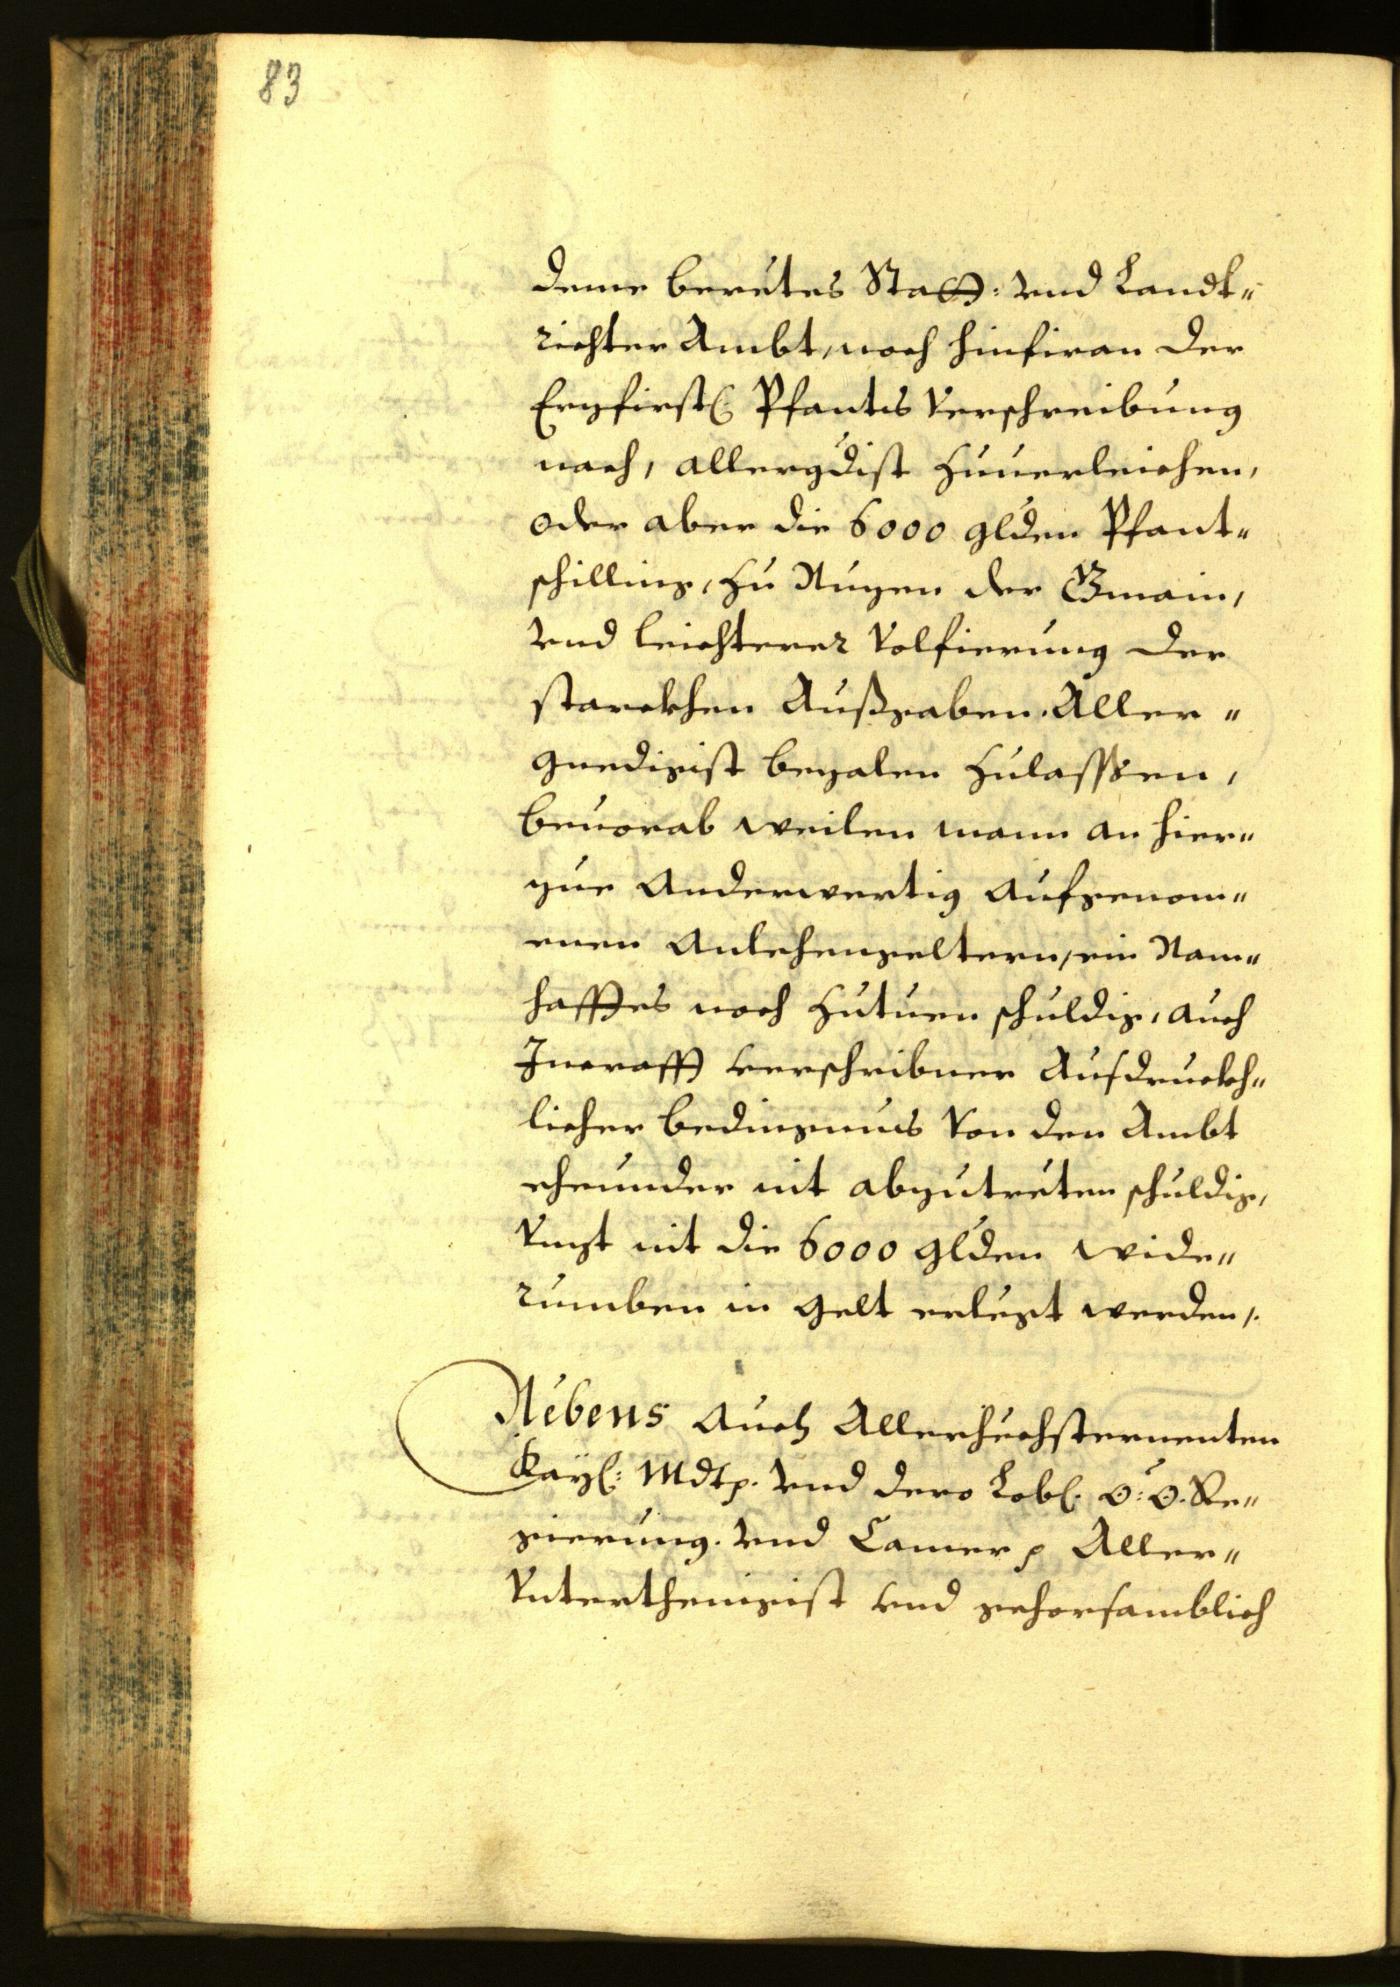 83
deme berẽtes Statt: vnd Landt„
richter Ambt, noch hinfiran der
Erzfirstl: Pfants verschreibung
nach, allergdist zuuerleichen,
oder aber die 6000 glden Pfant„
schilling, zu Nuzen der Gmain,
vnd leichterer Volfierung der
starckhen Außgaben, Aller„
gnedigist bezalen zulasssen,
beuorab weilen mann an hier„
zue Anderwertig aufgenom„
menen Anlehengeltern, ein Nam„
hafftes noch zutuen schuldig, auch
Incrafft verschribner Ausdruckh„
licher bedingnus von den Ambt
eheunder nit abzutrẽten schuldig,
Vnzt nit die 6000 glden wide„
rumben in gelt erlegt werden /.
Nebens auch Allerhechsternenten
Kayl: Mdtp. vnd dero Lobl. O: Ö. Re„
gierung. vnd Camer p Aller„
Vnterthenigist vnd gehorsamblich